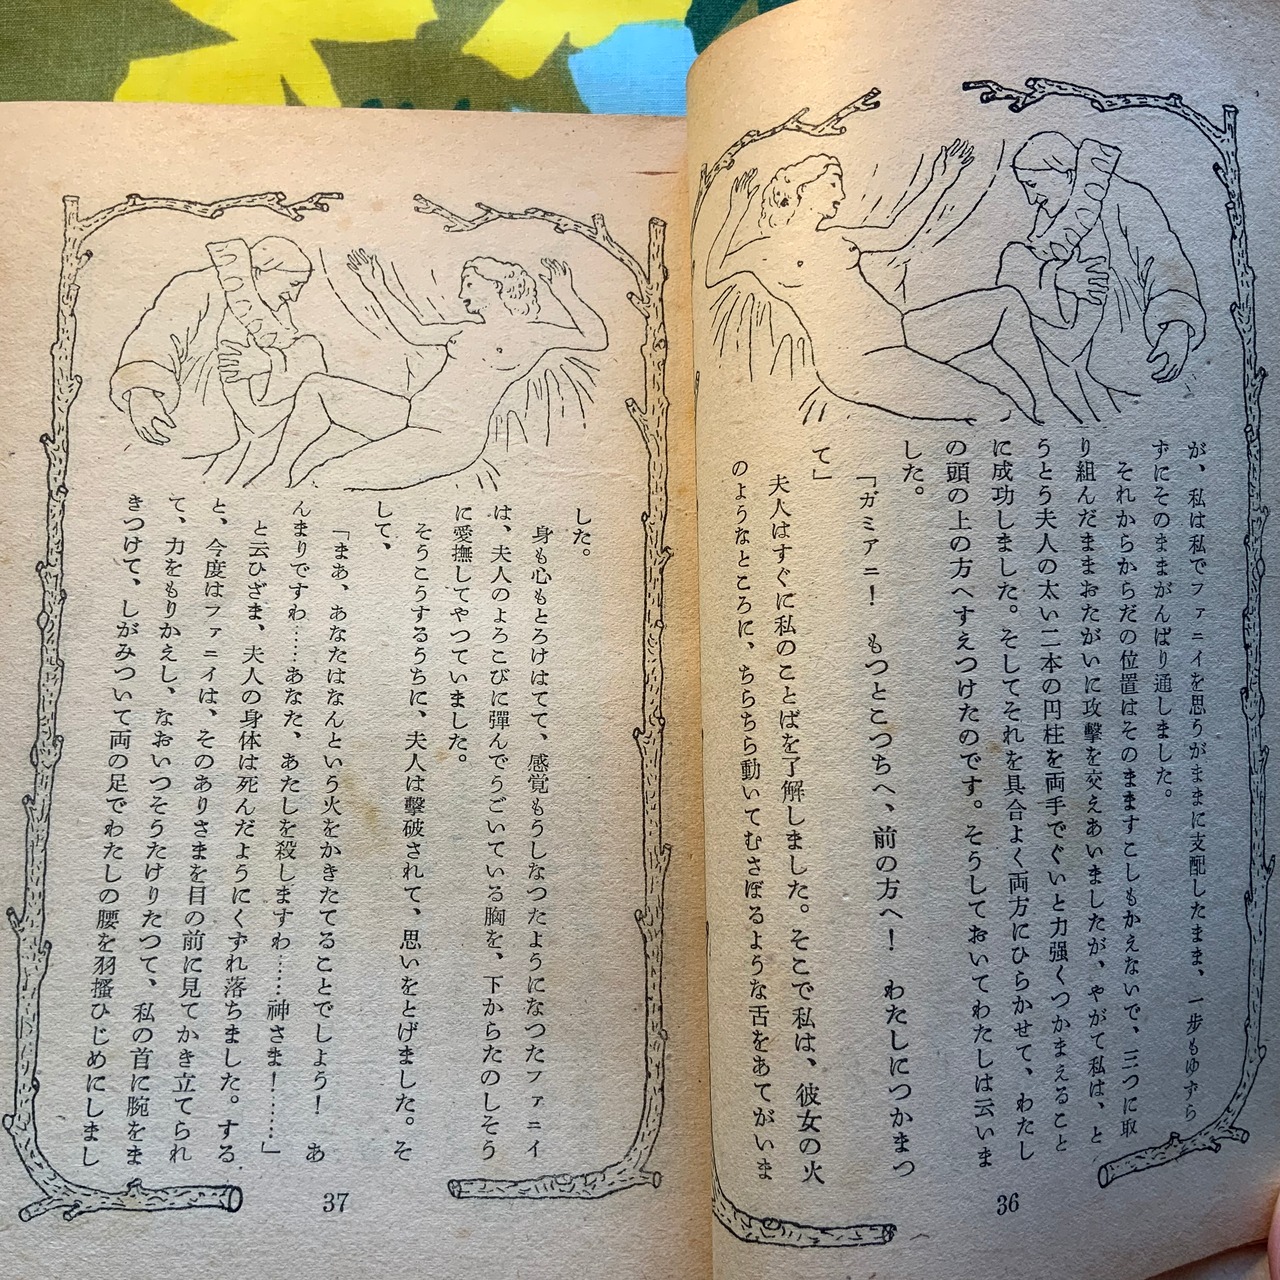 が、私は私でファニイを思うがままに支配したまま、一歩もゆずら
ずにそのままがんばり通しました。
それからからだの位置はそのまますこしもかえないで、三つに取
り組んだままおたがいに攻擊を交えあいましたが、やがて私は、と
うとう夫人の太い二本の円柱を両手でぐいと力强くつかまえること
に成功しました。そしてそれを具合よく両方にひらかせて、わたし
の頭の上の方へすえつけたのです。そうしておいてわたしは云いま
した。
「ガミアニ！　もつとこつちへ、前の方へ！　わたしにつかまつ
て」
夫人はすぐに私のことばを了解しました。そこで私は、彼女の火
のようなところに、ちらちら動いてむさぼるような舌をあてがいま
36
した。
身も心もとろけはてて、感覚もうしなつたようになつたファニイ
は、夫人のよろこびに彈んでうごいている胸を、下からたのしそう
に愛撫してやつていました。
そうこうするうちに、夫人は擊破されて、思いをとげました。そ
して、
「まあ、あなたはなんという火をかきたてることでしよう！　あ
んまりですわ……あなた、あたしを殺しますわ……神さま！……」
と云ひざま、夫人の身体は死んだようにくずれ落ちました。する
と、今度はファニイは、そのありさまを目の前に見てかき立てられ
て、力をもりかえし、なおいつそうたけりたつて、私の首に腕をま
きつけて、しがみついて両の足でわたしの腰を羽搔ひじめにしまし
37